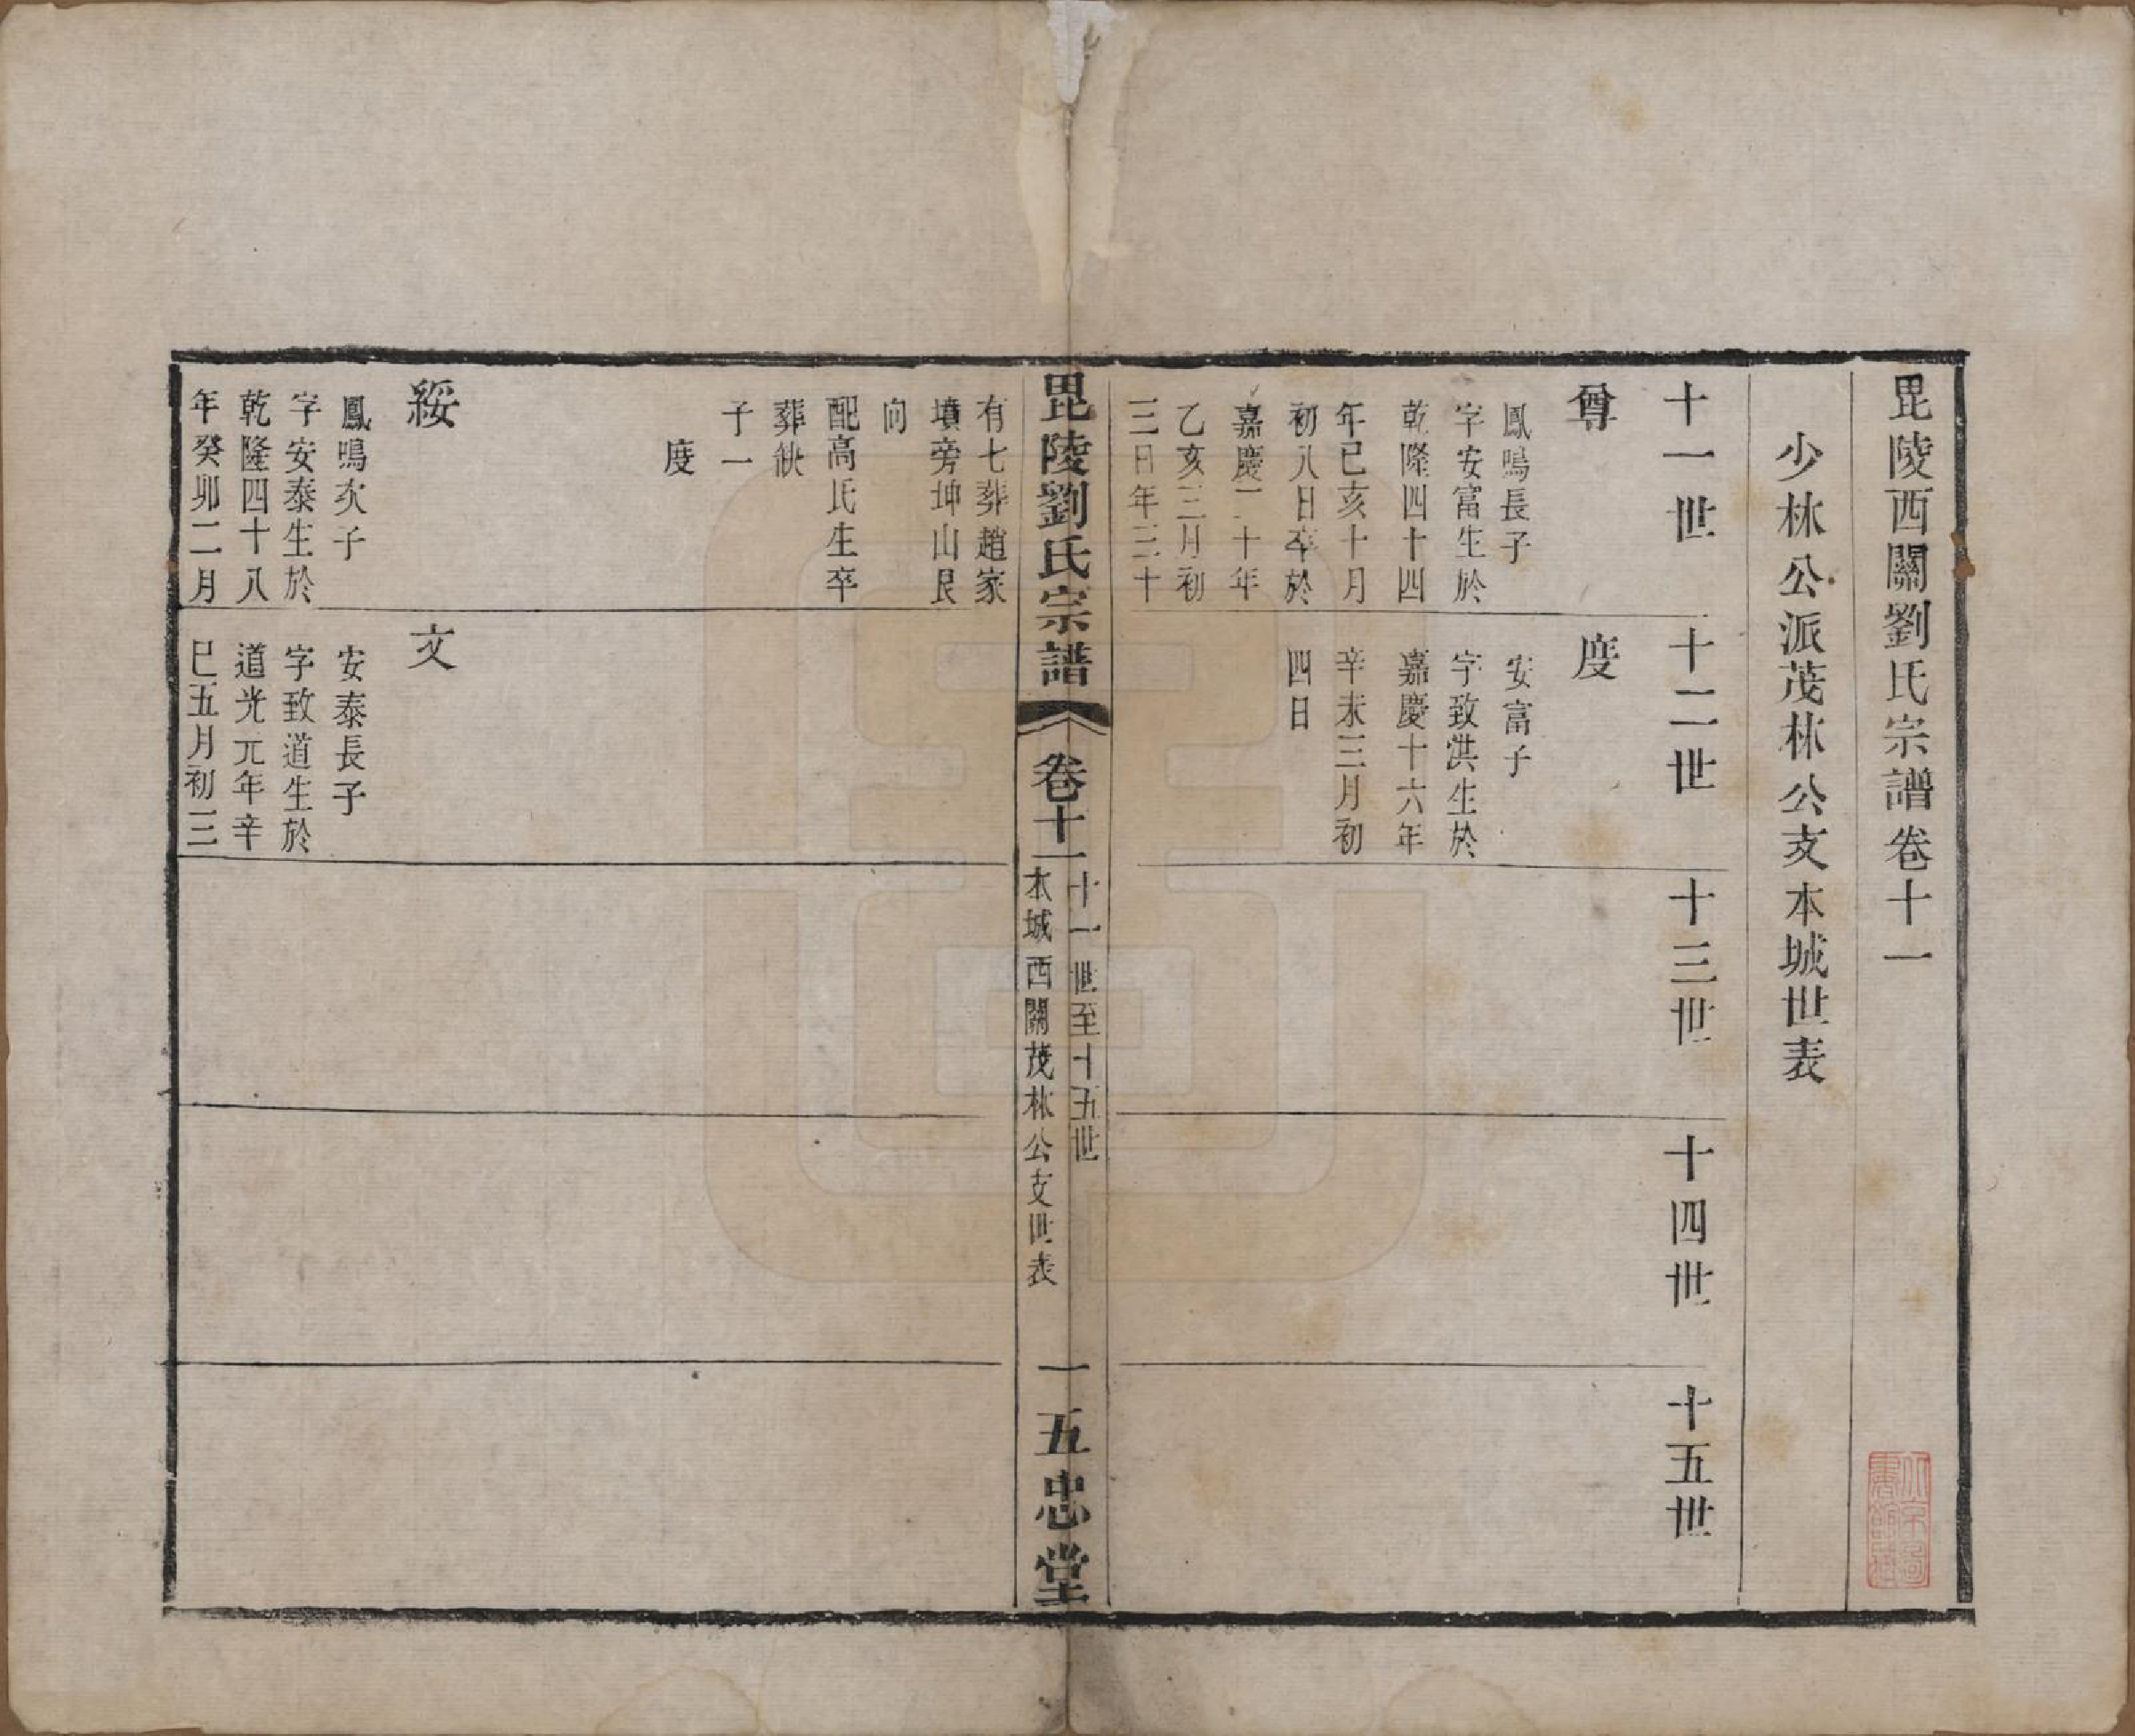 毘陵西關劉氏宗譜卷十一
少林公派茂林公支本城世表
十一世
十二世
十三世
十四世
十五世
尊
鳳鳴長子
字安富生於
乾隆四十四
年己亥十月
初八日卒於
嘉慶二十年
乙亥三月初
三日年三十
度
安富子
字致洪生於
嘉慶十六年
辛未三月初
四日
毘陵劉氏宗譜
卷十一
十一世至十五世
本城西關茂林公支世表
一
五忠堂
有七葬趙家
墳旁坤山艮
向
配高氏生卒
葬缺
子一
度
綏
鳳鳴次子
字安泰生於
乾隆四十八
年癸卯二月
文
安泰長子
字致道生於
道光元年辛
巳五月初三